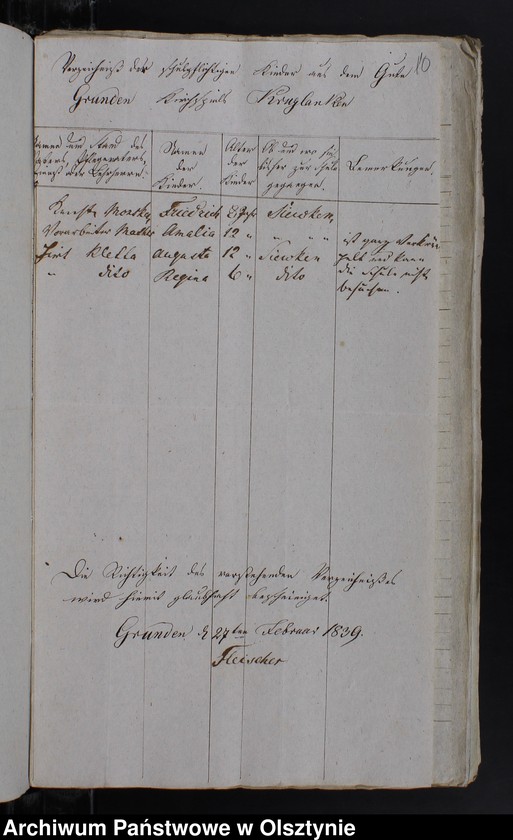 10
Verzeichniß der schulpflichtigen Kinder aus dem Gute
Grunden Kirchspiels Kruglanken
Namen und Stand des
Vaters, Pflegevaters,
Dienst oder Lehrherrn.
Namen
der
Kinder.
Alter
der
Kinder
Ob und wo sie
bisher zur Schule
gegangen.
Bemerkungen.
Friedrich Siewken
Vorarbeiter Amalia 12 " " " "
ist ganz verkrüp-
pelt und kann
die Schule nicht
besuchen.
Hirt Klella Augusta 12 " Siewken
" dito Regina 6 " dito
Die Richtigkeit des vorstehenden Verzeichnißes
wird hiemit glaubhaft bescheiniget.
Grunden d 27ten Februar 1839.
Fleischer
Archiwum Państwowe w Olsztynie